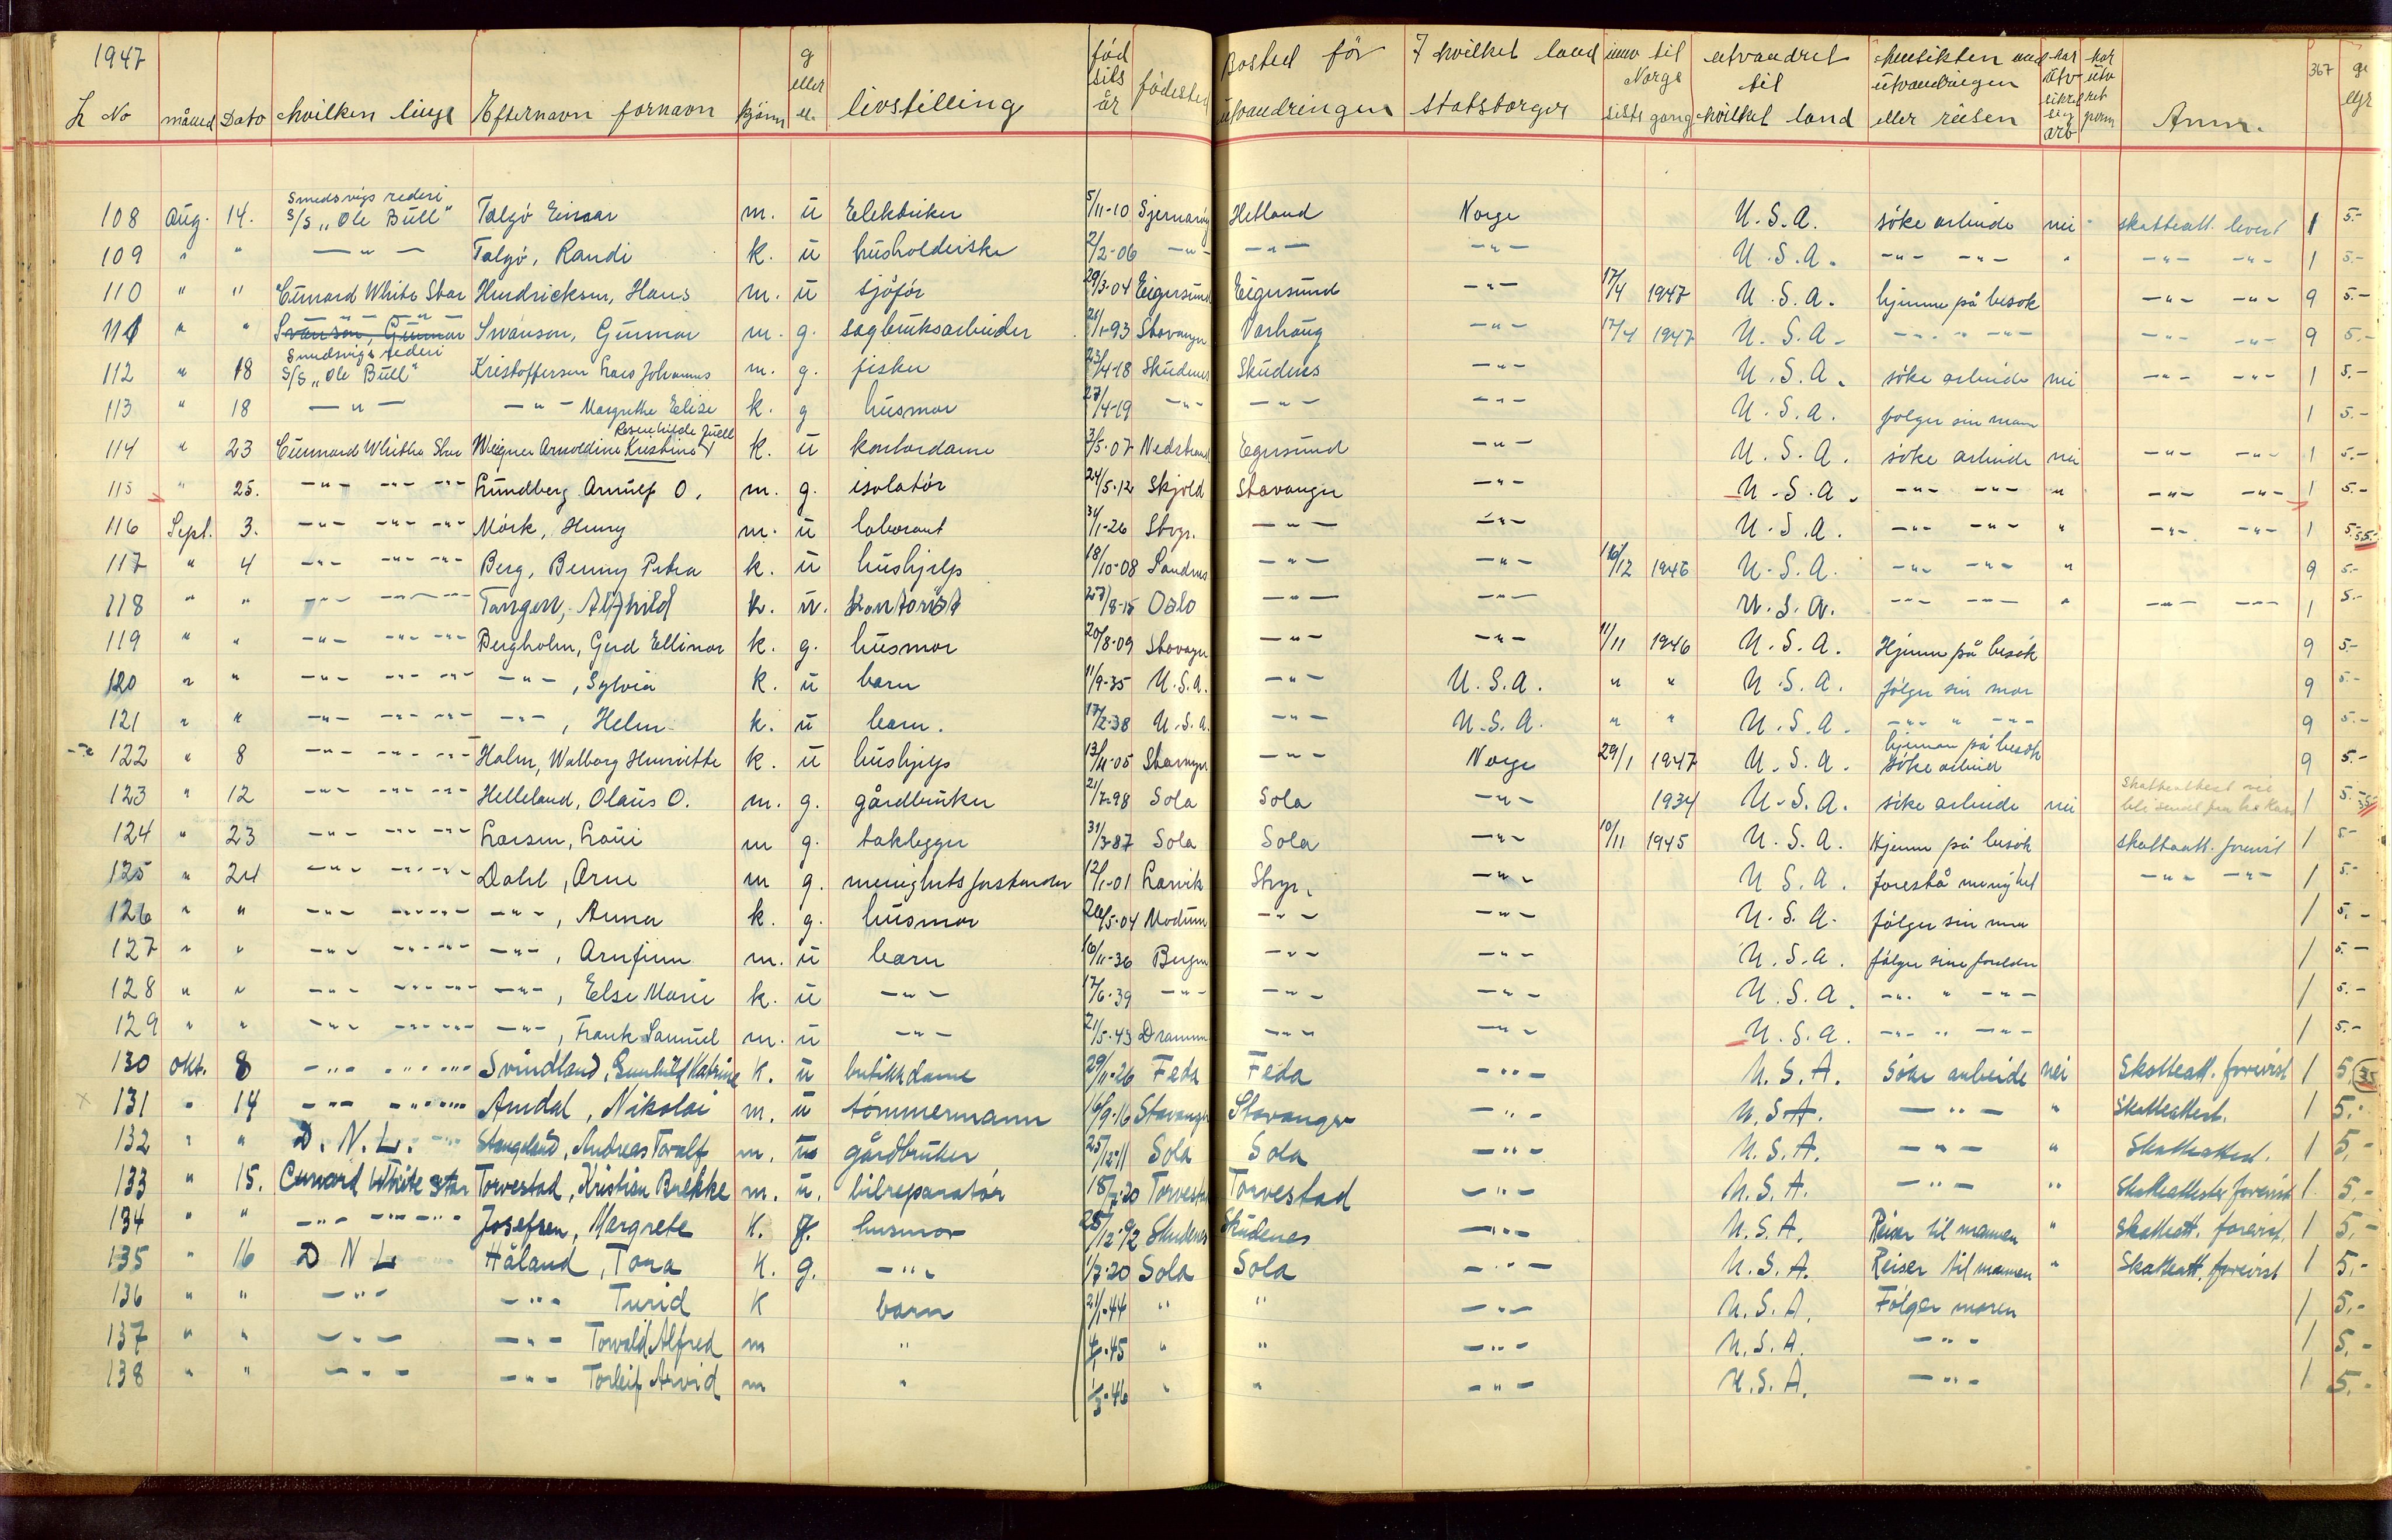 1947
L No måned Dato hvilken linje Efternavn fornavn kjönn g eller u. livstilling föd sels år fødested Bosted för utvandringen I hvilket land statsborger innv til Norge siste gang utvandret til hvilket land hensikten med utvandringen eller reisen har utv sikret seg arb har utv ret penn Anm. 367 ge
108 Aug. 14. Smedsvigs rederi S/S „Ole Bull" Talgö Einar m. u Elektriker 5/11-10 Sjernaröy Hetland Norge U.S.A. söke arbeide nei skatteatt. levert 1 5.-
109 " " -"- Talgö, Randi k. u husholderske 2/2-06 -"- -"- -"- U.S.A. -"- -"- " -"- -"- 1 5.-
110 " " Cunard White Star Hendricksen, Hans m. u sjöför 29/3-04 Eigersund Eigersund -"- 17/4 1947 U.S.A. hjemme på besok -"- -"- 9 5.-
111 " " -"- -"- Swanson, Gunnar Swanson, Gunnar m. g. sagbruksarbeider 28/1-93 Stavanger Varhaug -"- 17/4 1947 U.S.A. -"- " -"- -"- -"- 9 5.-
112 " 18 Smedsvigs rederi S/S „Ole Bull" Kristoffersen Lars Johannes m. g. fisker 23/4-18 Skudenes Skudenes -"- U.S.A. söke arbeide nei -"- -"- 1 5.-
113 " 18 -"- -"- Margrethe Elise k. g husmor 27/4-19 -"- -"- -"- U.S.A. følger sin man 1 5.-
114 " 23 Cunnard Whithe Star Weigner Arnoldine Kristine Rosenhilde Juell k. u kontordame 3/5-07 Nedstrand Egersund -"- U.S.A. söke arbeide nei -"- -"- 1 5.-
115 " 25. -"- -"- -"- Lundberg Arnulf O. m. g. isolatör 24/5-12 Skjold Stavanger -"- U.S.A. -"- -"- " -"- -"- 1 5.-
116 Sept. 3. -"- -"- -"- Mörk, Henry m. u laborant 31/1-26 Stvgr. -"- -"- U.S.A. -"- -"- " -"- -"- 1 5.-
117 " 4 -"- -"- -"- Berg, Benny Petra k. u hushjelp 18/10-08 Sandnes -"- -"- 10/12 1946 U.S.A. -"- -"- " 9 5.-
118 " " -"- -"- -"- Tangen, Alfhild k. u. kontorist 27/8-15 Oslo -"- -"- U.S.A. -"- -"- " -"- -"- 1 5.-
119 " " -"- -"- -"- Bergholm, Gerd Ellinor k. g. husmor 20/8-09 Stavager -"- -"- 11/11 1946 U.S.A. Hjemme på besök 9 5.-
120 " " -"- -"- -"- -"-, Sylvia k. u barn 11/9-35 U.S.A. -"- U.S.A. " " U.S.A. fölger sin mor 9 5.-
121 " " -"- -"- -"- -"-, Helen k. u barn. 17/2-38 U.S.A. -"- U.S.A. " " U.S.A. -"- " -"- 9 5.-
122 " 8 -"- -"- -"- Holm, Walborg Henriette k. u hushjelp 13/11-05 Stavanger -"- Norge 29/1 1947 U.S.A. hjemme på besök söke arbeid 9 5.-
123 " 12 -"- -"- -"- Helleland, Olaus O. m. g. gårdbruker 21/7-98 Sola Sola -"- 1934 U.S.A. söke arbeide nei Skatteattest vil bli sendt fra 1 5.-
124 " 23 -"- -"- -"- Larsen, Laui m g. taklegger 31/3-87 Sola Sola -"- 10/11 1945 U.S.A. Hjemme på besök skatteatt. forevist 1 5.-
125 " 24 -"- -"- -"- Dahl, Arne m g. menighetsforstander 12/1-01 Larvik Stvgr. -"- U.S.A. forestå menighet -"- -"- 1 5.-
126 " " -"- -"- -"- -"-, Anna k. g. husmor 26/5-04 Modum -"- -"- U.S.A. fölger sin man 1 5.-
127 " " -"- -"- -"- -"-, Arnfinn m. u barn 16/11-36 Bergen -"- -"- U.S.A. fölger sine foreldre 1 5.-
128 " " -"- -"- -"- -"-, Else Marie k. u -"- 17/6-39 -"- -"- -"- U.S.A. -"- " -"- 1 5.-
129 " " -"- -"- -"- -"-, Frank Samuel m. u -"- 21/5-43 Drammen -"- -"- U.S.A. -"- " -"- 1 5.-
130 okt. 8 -"- -"- -"- Svindland, Gunhild Katrine K. u butikkdame 29/11-26 Feda Feda -"- U.S.A. Söke arbeide nei Skatteatt. forevist 1 5.- 35
131 " 14 -"- -"- -"- Amdal, Nikolai m. u tömmermann 16/9-16 Stavanger Stavanger -"- U.S.A. -"- " Skatteattest. 1 5.-
132 " " D.N.L. -"- Stangeland, Andreas Toralf m. u gårdbruker 25/12-11 Sola Sola -"- U.S.A. -"- " Skatteattest. 1 5.-
133 " 15. Cunard White Star Torvestad, Kristian Brekke m. u. bilreparatör 18/7-20 Torvestad Torvestad -"- U.S.A. -"- " Skatteattester forevist 1 5.-
134 " " -"- -"- -"- Josefsen, Margrete K. g. husmor 25/12-92 Skudenes Skudenes -"- U.S.A. Reiser til mannen " Skatteatt. forevist. 1 5.-
135 " 16 D N L Håland, Tora K. g. -"- 1/7-20 Sola Sola -"- U.S.A. Reiser til mannen " Skatteatt. forevist 1 5.-
136 " " -"- -"- Turid K barn 21/1-44 " " -"- U.S.A. Fölger moren 1 5.-
137 " " -"- -"- Torvald Alfred m " -45 " " -"- U.S.A. -"- 1 5.-
138 " " -"- -"- Torleif Arvid m " 1/3-46 " " -"- U.S.A. -"- 1 5.-